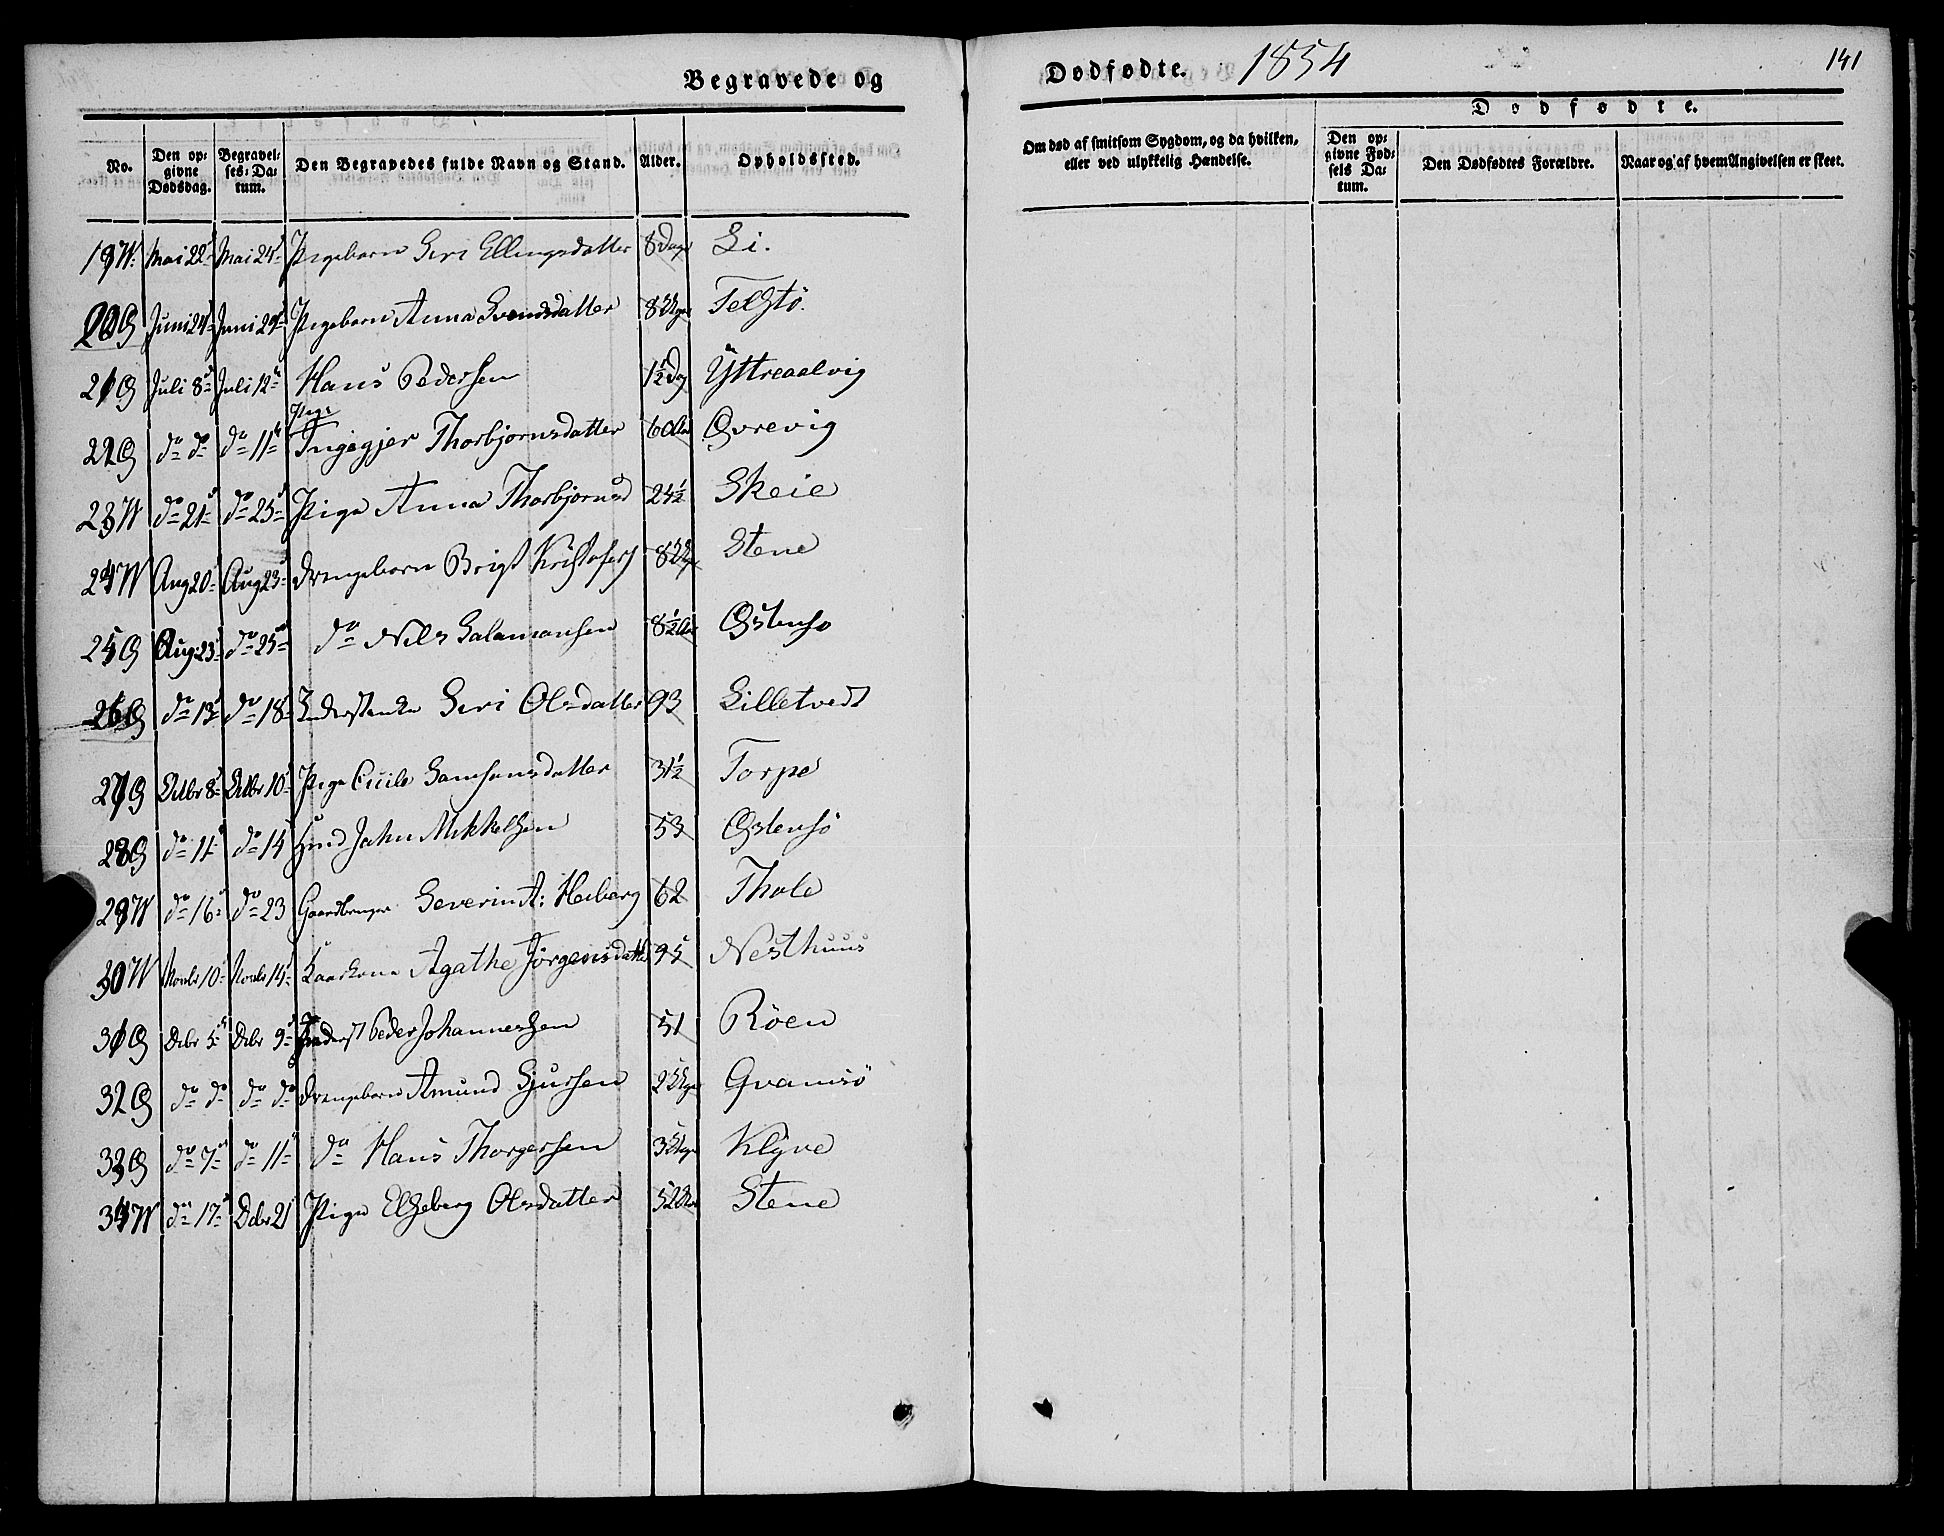 Begravede og
Dødfødte. 1854
141
No.
Den opgivne Dødsdag.
Begravelses-Datum.
Den Begravedes fulde Navn og Stand.
Alder.
Opholdssted.
Om død af smitsom Sygdom, og da hvilken, eller ved ulykkelig Hændelse.
Dødfødte.
Den opgivne Fødsels Datum.
Den Dødfødtes Forældre.
Naar og af hvem Angivelsen er skeet.
19 Mai 22 Mai 24 Pigebarn Siri Ellingsdatter 8 Dage Li.
20 Juni 24 Juni 29 Pigebarn Anna Svendsdatter 8 Uger Felstø.
21 Juli 8 Juli 12 Hans Pedersen 1½ Dag Yttreaalvig
22 do do do 11 Pige Ingegjer Thorbjørnsdatter 6 Aar Øvrevig
23 do 21 do 25 Pige Anna Thorbjørnsd 24½ Skeie
24 Aug 20 Aug 23 Drengebarn Brigt Kristofers 8 Stene
25 Aug: 23 do 25 do Nils Salamonsen 8½ Aar Østensø
26 do 13 do 18 Siri Olsdatter 93 Lilletvedt
27 Octbr 8 Octbr 10 Pige Cicile Samsonsdatter 31½ Torpe
28 do 11 do 14 John Mikkelsen 53 Østensø
29 do 16 do 23 Gaardbruger Severin A: Heiberg 62 Thole
30 Novbr 10 Novbr 14 Kaarkone Agathe Jørgensdatter 95 Nesthuus
31 Debr 5 Debr 9 Inderst Peder Johannessen 51 Röen
32 do do do do Drengebarn Amund Sjursen 2 Uger Qvamsö
33 do 7 do 11 do Hans Thorgersen 3 Uger Klyve
34 do 17 Debr 21 Pige Elseberg Olsdatter 52 Aar Stene